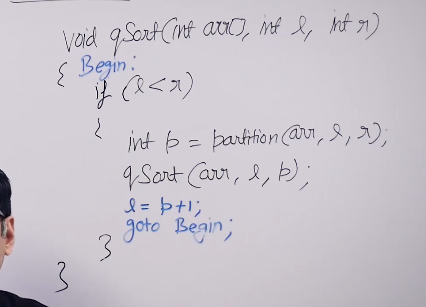 void qSort(int arr[], int l, int r)
{ Begin:
if (l<r)
{
int p = partition(arr, l, r);
qSort(arr, l, p);
l = p+1;
goto Begin;
}
}